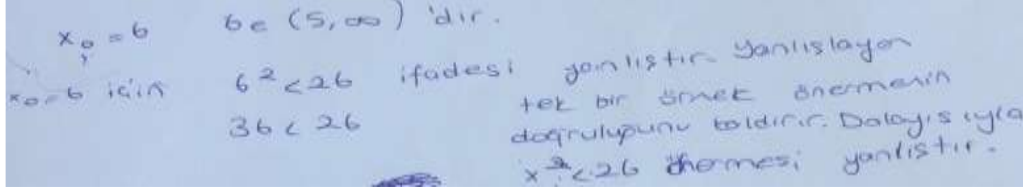 x₀ = 6 6 ∈ (5, ∞) 'dır.
x₀=6 için 6² < 26 ifadesi yanlıştır. Yanlışlayan
36 < 26 tek bir örnek önermenin
doğruluğunu kaldırır. Dolayısıyla
x² < 26 önermesi yanlıştır.